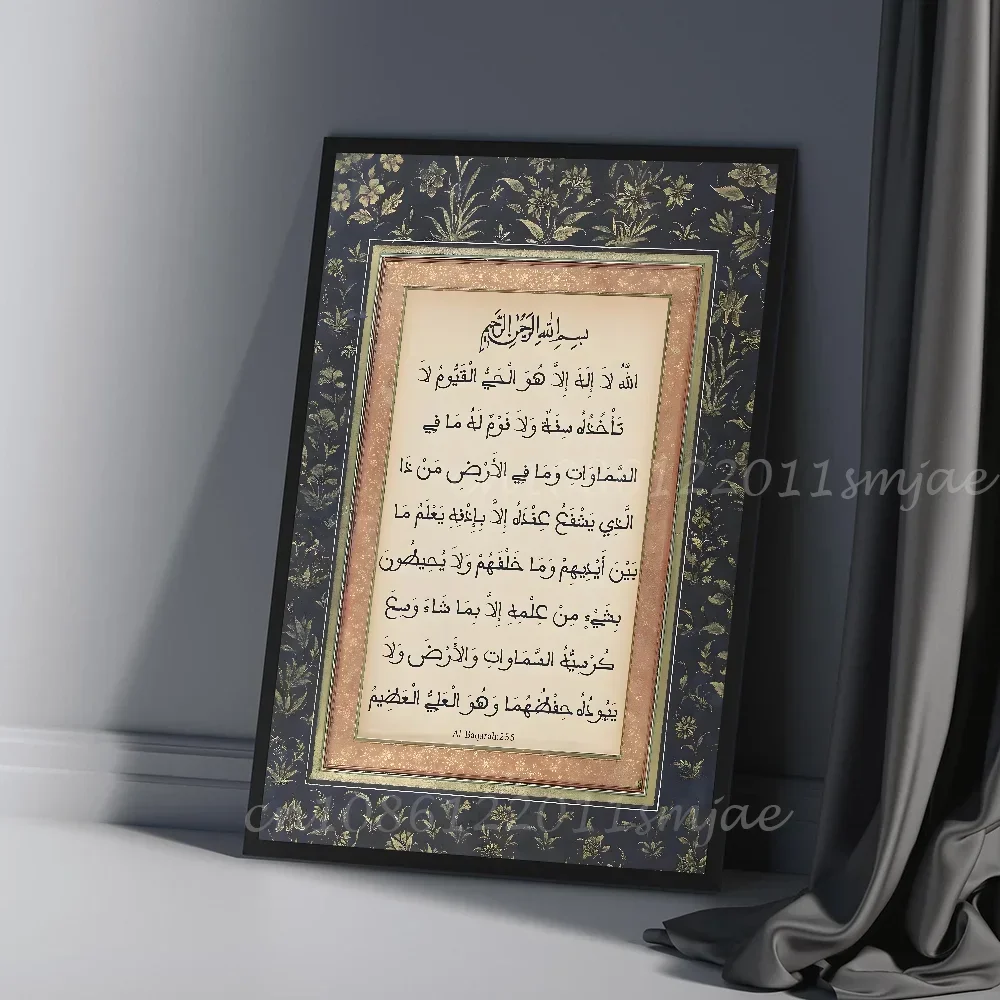 بسم الله الرحمن الرحيم
اللَّهُ لَا إِلَهَ إِلَّا هُوَ الْحَيُّ الْقَيُّومُ لَا
تَأْخُذُهُ سِنَةٌ وَلَا نَوْمٌ لَهُ مَا فِي
السَّمَاوَاتِ وَمَا فِي الْأَرْضِ مَنْ ذَا
الَّذِي يَشْفَعُ عِنْدَهُ إِلَّا بِإِذْنِهِ يَعْلَمُ مَا
بَيْنَ أَيْدِيهِمْ وَمَا خَلْفَهُمْ وَلَا يُحِيطُونَ
بِشَيْءٍ مِنْ عِلْمِهِ إِلَّا بِمَا شَاءَ وَسِعَ
كُرْسِيُّهُ السَّمَاوَاتِ وَالْأَرْضَ وَلَا
يَئُودُهُ حِفْظُهُمَا وَهُوَ الْعَلِيُّ الْعَظِيمُ
Al Baqarah:255
122011smjae
cn1086122011smjae